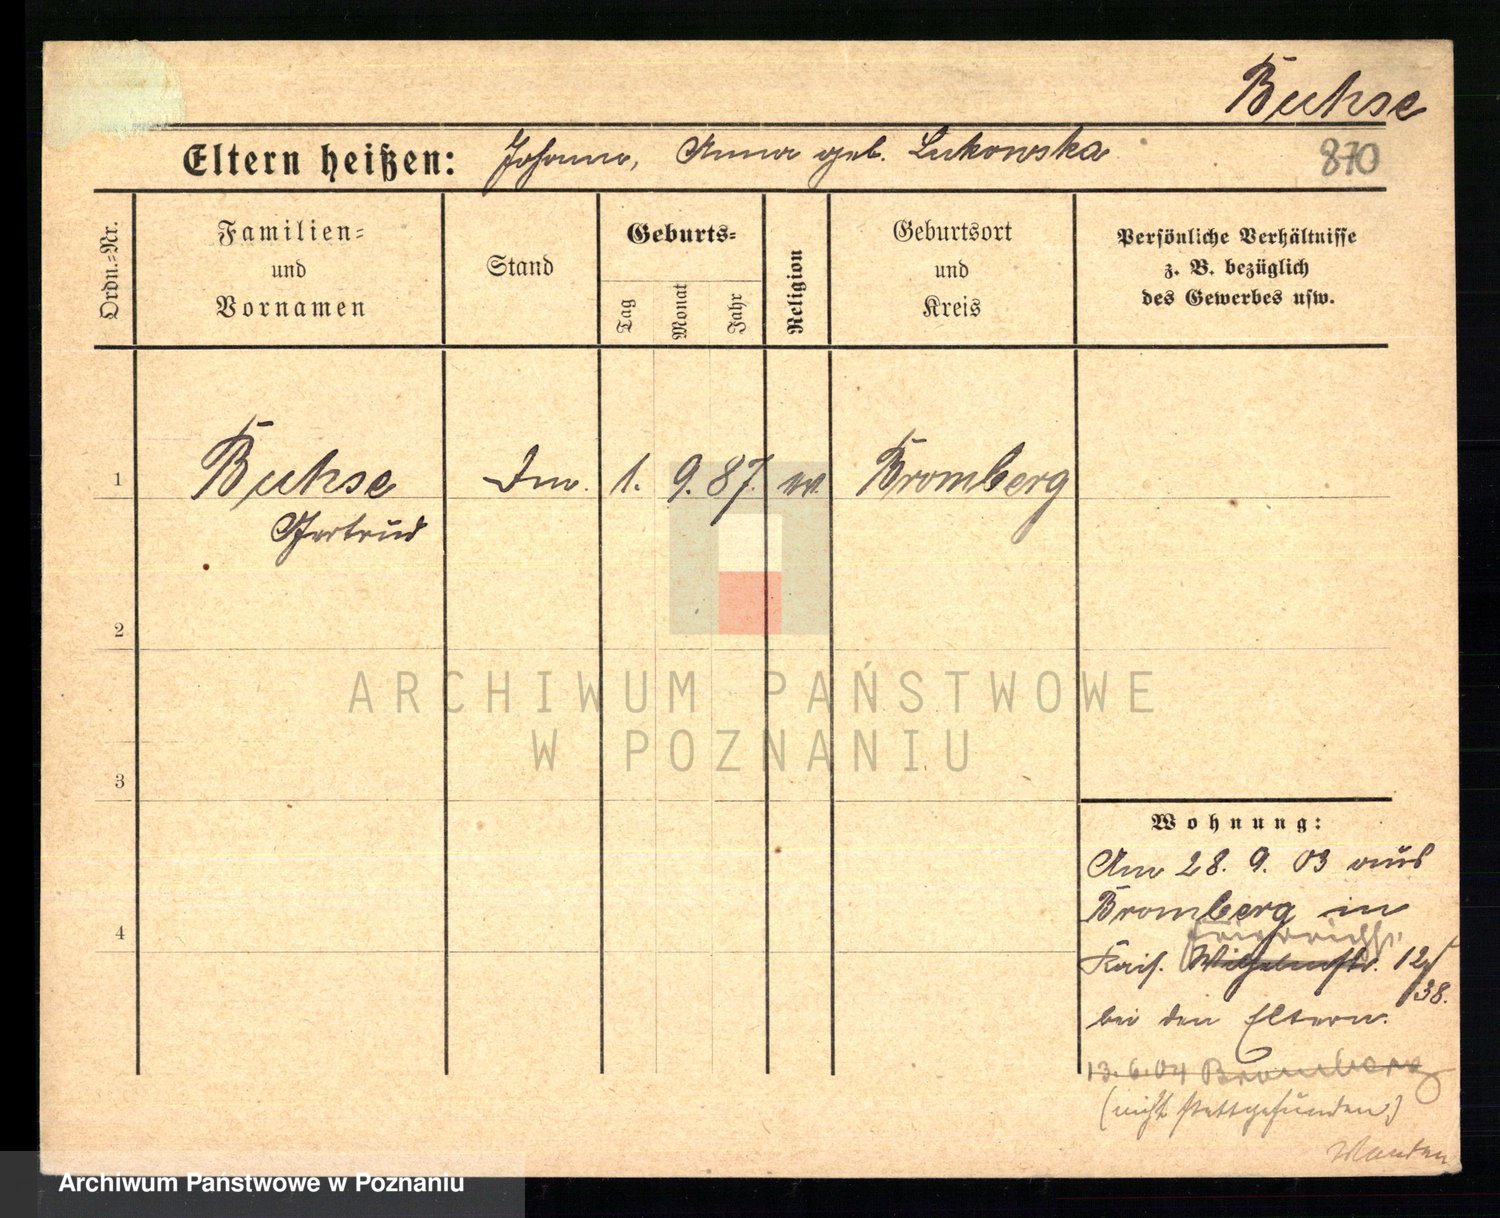 Buhse
Eltern heißen: Johann, Anna geb. Lukowska
870
Ordn.-Nr.
Familien-
und
Vornamen
Stand
Geburts-
Tag
Monat
Jahr
Religion
Geburtsort
und
Kreis
Persönliche Verhältnisse
z. B. bezüglich
des Gewerbes usw.
1 Buhse 1. 9. 87. Bromberg
Gertrud
2
3
4
ARCHIWUM PAŃSTWOWE
W POZNANIU
Wohnung:
Am 28. 9. 03 aus
Bromberg in
Friedrichstr.
Kais. Wilhelmstr. 12/
38.
bei den Eltern.
13.6.04 Bromberg
(nicht stattgefunden)
Archiwum Państwowe w Poznaniu